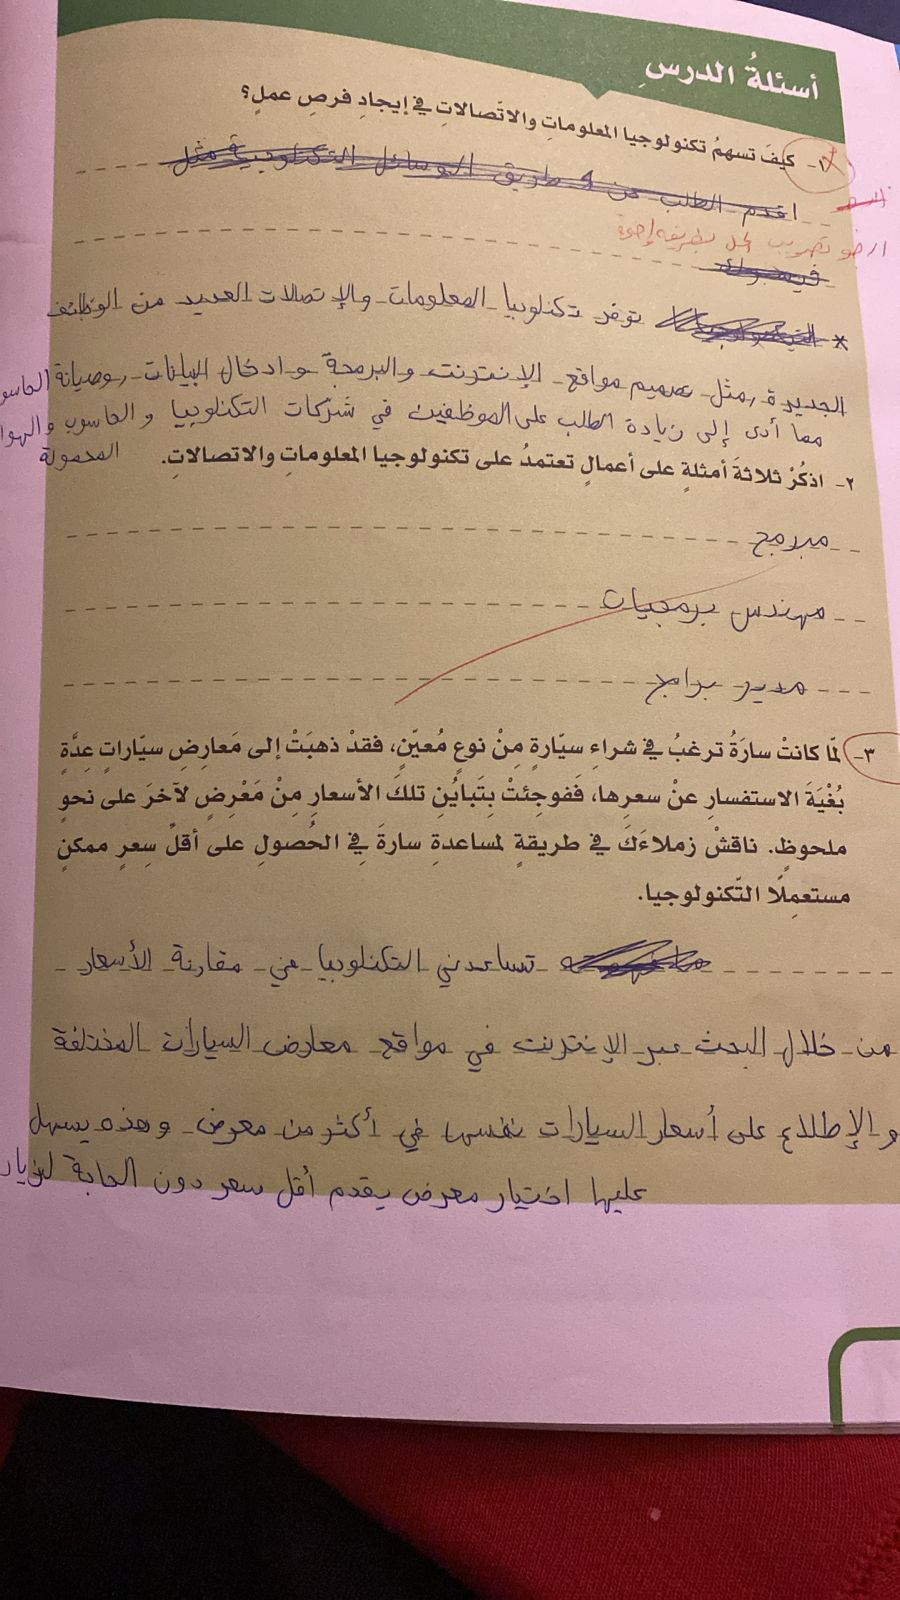 أسئلةُ الدرسِ
١- كيفَ تسهمُ تكنولوجيا المعلوماتِ والاتّصالاتِ في إيجادِ فرصِ عملٍ؟
اقدم الطلب عن طريق الوسائل التكنولوجية مثل
ارجو تصويب الحل بطريقه
فيسبوك
* توفر تكنلوجيا المعلومات والإتصالات العديد من الوظائف
الجديدة, مثل تصميم مواقع الإنترنت والبرمجة و ادخال البيانات وصيانة الحاسو
مما أدى إلى زيادة الطلب على الموظفين في شركات التكنلوجيا و الحاسوب والهوا
المحمولة
٢- اذكُرْ ثلاثةَ أمثلةٍ على أعمالٍ تعتمدُ على تكنولوجيا المعلوماتِ والاتصالاتِ.
مبرمج
مهندس برمجيات
مدير برامج
٣- لمّا كانتْ سارَةُ ترغبُ في شراءِ سيّارةٍ مِنْ نوعٍ مُعيّنٍ، فقدْ ذهبَتْ إلى مَعارِضِ سيّاراتٍ عِدَّةٍ
بُغْيَةَ الاستفسارِ عنْ سعرِها، ففوجِئتْ بِتَبايُنِ تلكَ الأسعارِ مِنْ مَعْرِضٍ لآخرَ على نحوٍ
ملحوظٍ. ناقشْ زملاءَكَ في طريقةٍ لمساعدةِ سارةَ في الحُصولِ على أقلِّ سِعرٍ ممكنٍ
مستعمِلًا التّكنولوجيا.
تساعدني التكنلوجيا في مقارنة الأسعار
من خلال البحث عبر الإنترنت في مواقع معارض السيارات المختلفة
و الإطلاع على أسعار السيارات نفسها في أكثر من معرض وهذه يسهل
عليها اختيار معرض يقدم أقل سعر دون الحاجة لزيار